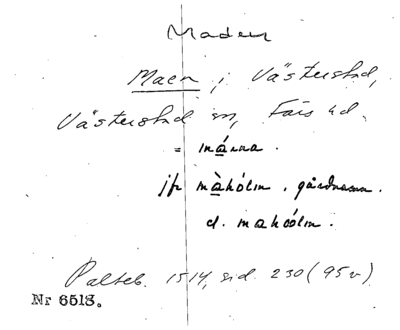 Maden
Maen i Västerstad,
Västerstad sn, Färs hd.
= må
jfr màhólm. gårdnamn.
d. mahóólm.
Palteb. 1514, sid. 230 (95v)
Nr 6513.